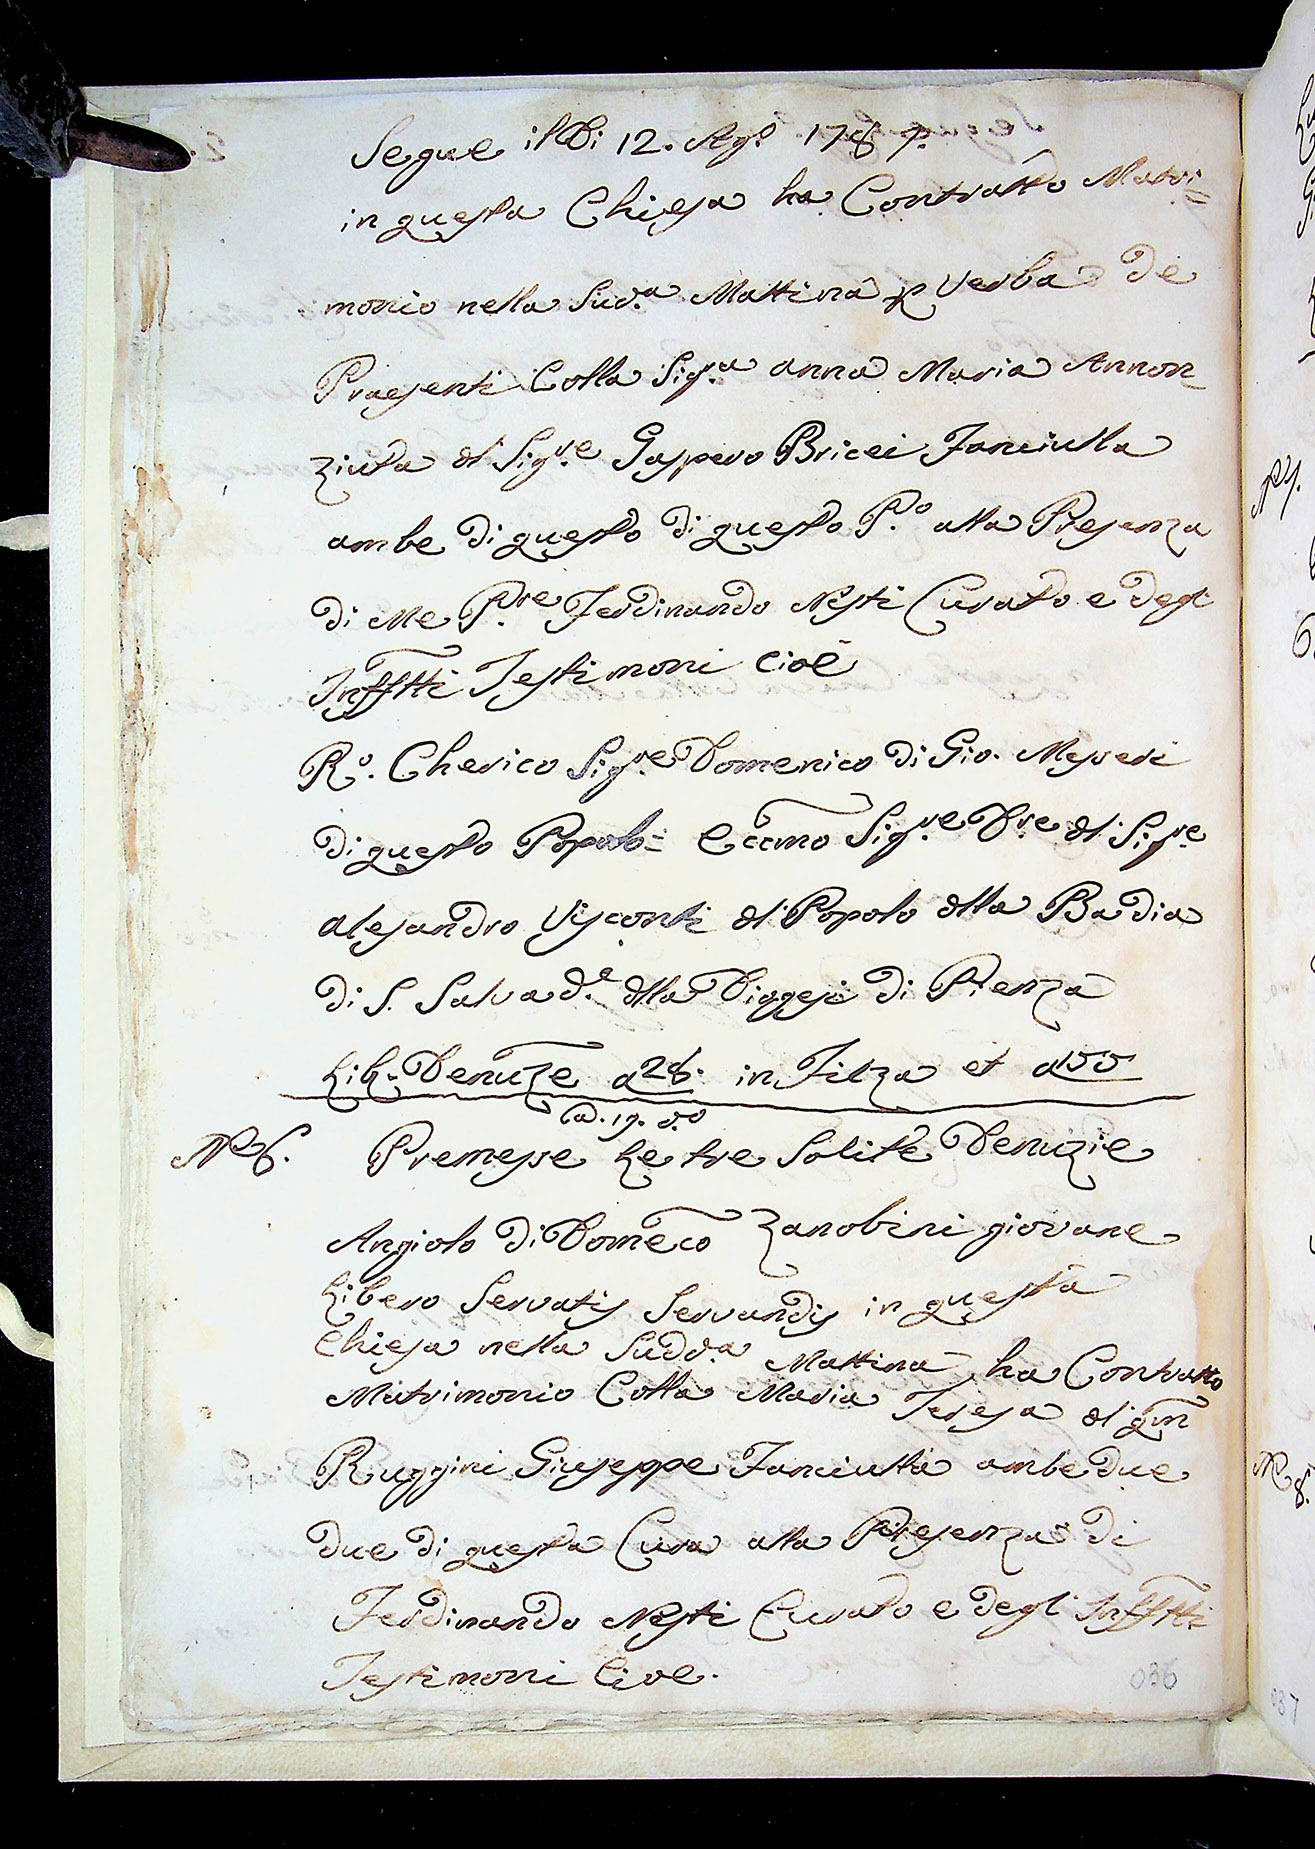 Segue il Di 12. Ag.o 1787.
in questa Chiesa ha Contratto Matri=
monio nella Sud.a Mattina p Verba de
Praesenti Colla Sig.ra anna Maria Annon
ziata dl Sig.re Gaspero Bricci Fanciulla
ambe di questo di questo P.o alla Presenza
di Me P.re Ferdinando Nesti Curato e degl
Infftti Testimoni cioè
R.o Cherico Sig.re Domenico di Gio. Messeri
di questo Popolo= Eccmo Sig.re D.re dl Sig.re
alesandro Visconti dl Popolo dlla Badia
di S. Salvad.e dlla Diogesi di Pienza
Lib. Denuzie a 28. in Filza et a 155
a. 19. d.o
N.o 6. Premesse Le tre Solite Denuzie
Angiolo di Domeco Zanobini giovane
Libero Servatis Servandis in questa
Chiesa nella Sudd.a Mattina ha Contratto
Matrimonio Colla Maria Teresa dl qm
Ruggini Giuseppe Fanciulla ambedue
due di questa Cura alla Presenza di
Ferdinando Nesti Curato e degl Infftti
Testimoni Cioe.
036
N.o 7.
N.o 8.
037